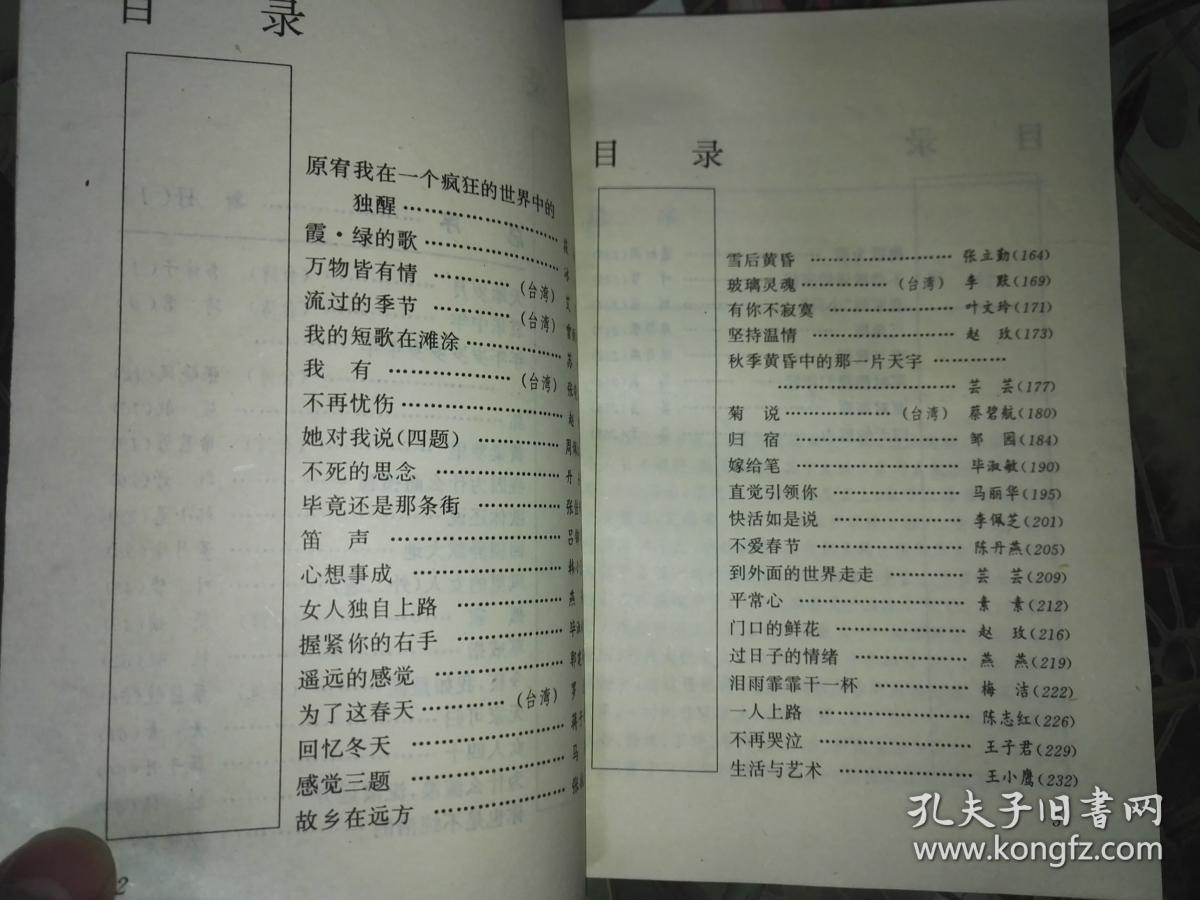 目 录
原宥我在一个疯狂的世界中的
独醒……………………
霞·绿的歌……………………
万物皆有情…………(台湾)
流过的季节…………(台湾)
我的短歌在滩涂……………
我 有…………(台湾)
不再忧伤……………………
她对我说(四题)…………
不死的思念…………………
毕竟还是那条街……………
笛 声……………………
心想事成……………………
女人独自上路………………
握紧你的右手………………
遥远的感觉…………………
为了这春天…………(台湾)
回忆冬天……………………
感觉三题……………………
故乡在远方…………………
2
目 录
雪后黄昏………………张立勤(164)
玻璃灵魂…………(台湾) 李 黙(169)
有你不寂寞………………叶文玲(171)
坚持温情………………赵 玫(173)
秋季黄昏中的那一片天宇…………
……………………芸 芸(177)
菊 说…………(台湾) 蔡碧航(180)
归 宿………………邹 园(184)
嫁给笔………………毕淑敏(190)
直觉引领你………………马丽华(195)
快活如是说………………李佩芝(201)
不爱春节………………陈丹燕(205)
到外面的世界走走…………芸 芸(209)
平常心………………素 素(212)
门口的鲜花………………赵 玫(216)
过日子的情绪………………燕 燕(219)
泪雨霏霏干一杯……………梅 洁(222)
一人上路………………陈志红(226)
不再哭泣………………王子君(229)
生活与艺术………………王小鹰(232)
孔夫子旧书网
www.kongfz.com